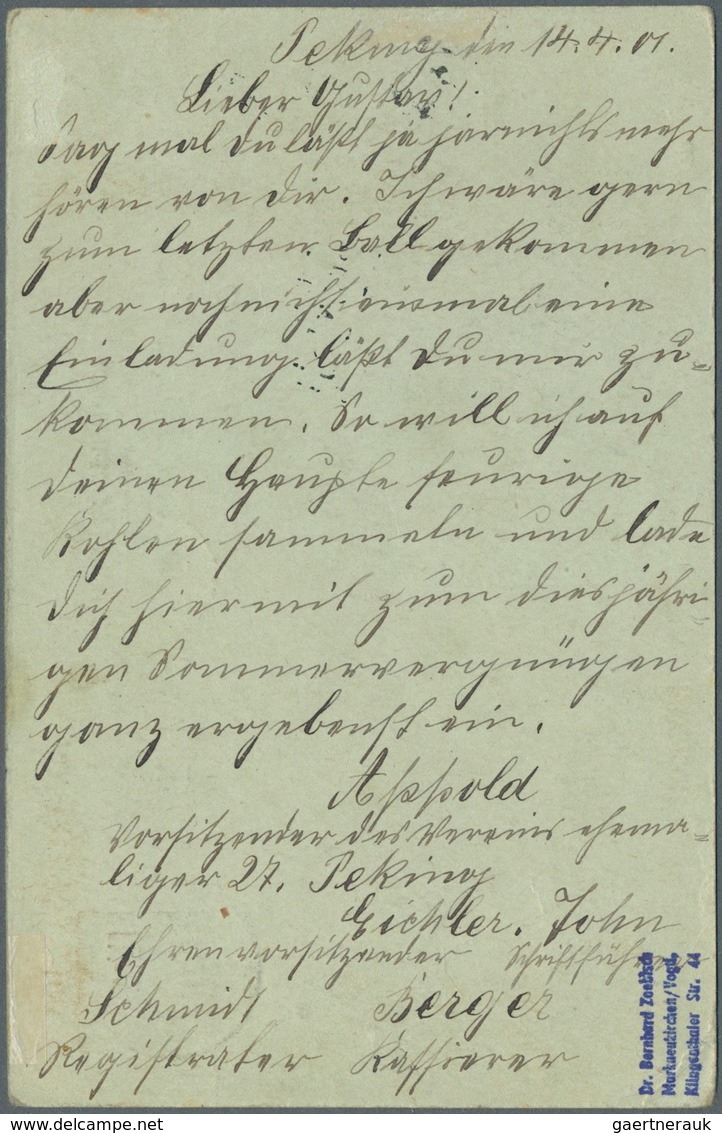 Peking den 14.4.01.
Lieber Gustav!
Sag mal du läßt ja jarnichts mehr
hören von dir. Ich wäre gern
zum letzten Ball gekommen
aber noch nicht einmal eine
Einladung läßt du mir zu=
kommen. So will ich auf
deinen Haupte feurige
Kohlen sammeln und lade
dich hiermit zum diesjähri=
gen Sommervergnügen
ganz ergebenst ein.
Appold
Vorsitzender des Vereins ehema=
liger 27. Peking
Eichler. John
Ehrenvorsitzender Schriftführer
Schmidt Berger
Registrater Kassierer
Dr. Bernhard Zoebisch
Markneukirchen/Vogtl.
Klingenthaler Str. 44
delcampe.net
gaertnerauk